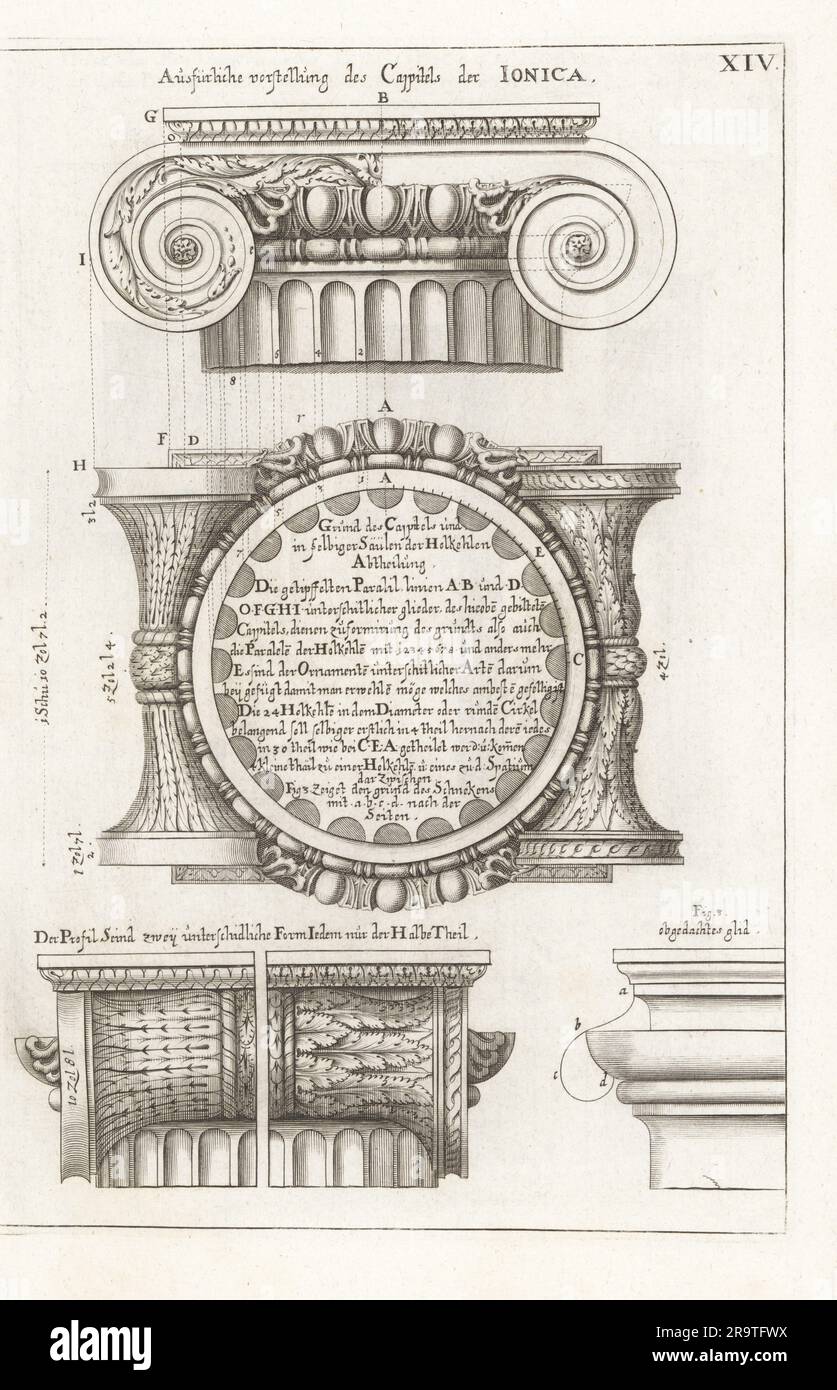 XIV.
Ausfürliche vorstellung des Cappitels der IONICA.
B
G
O
I
8
5
4
2
A
r
F D
H
3 l 2
A
1
3
5
7
Grund des Cappitels und
in selbiger Säulen der Holkehlen
Abtheilung.
E
Die getipffelten Paralil. linien A·B und·D.
O·F·G·H·I· unterschitlicher glieder, des hieobē gebiltetē
Cappitels, dienen züformirung des grundts also auch
die Paralelē der Holkehlē mit 1 2 3 4 5 6 7 8 und anders mehr
C
Es ind der Ornamentē unterschitlicher Artē darum
bey gefügt damit man erwehlē möge welches am bestē gefelligist
Die 24 Holkehlē in dem Diameter oder runden Cirkel
belangend soll selbiger erstlich in 4 theil hernach derē iedes
in 30 theil wie bei C·E·A· getheilet werd: u: komen
4 kleine thäl zu einer Holkehlē. u: eines zu d. Spatium
dar zwischen
Fig 3 Zeiget den grund des Schnekens
mit ·a·b·c·d· nach der
Seiten.
1 Schu 10 Zol 7 l. 2.
5 Zol 2 l 4.
4 Zol.
1 Zol 7 l.
2.
Der Profil Seind zweÿ unterschidliche Form Iedem nur der Halbe Theil.
10 Zol 8 l.
Fig. 3.
obgedachtes glid.
a
b
c
d
alamy
Image ID: 2R9TFWX
www.alamy.com